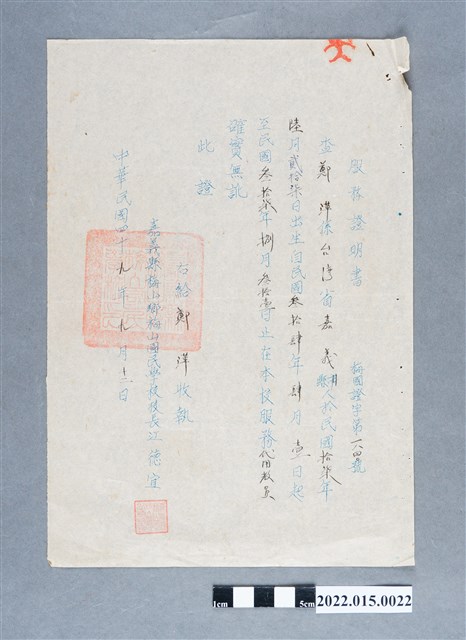 服務證明書
梅國證字第一八四號
查鄭洋係台灣省嘉義縣人於民國拾柒年
陸月貳拾柒日出生自民國叁拾肆年肆月壹日起
至民國叁拾柒年捌月叁拾壹日止在本校服務代用教員
確實無訛
此證
右給鄭洋收執
嘉義縣梅山鄉梅山國民學校校長江德宜
中華民國四十九年九月十二日
1cm
5cm
2022.015.0022